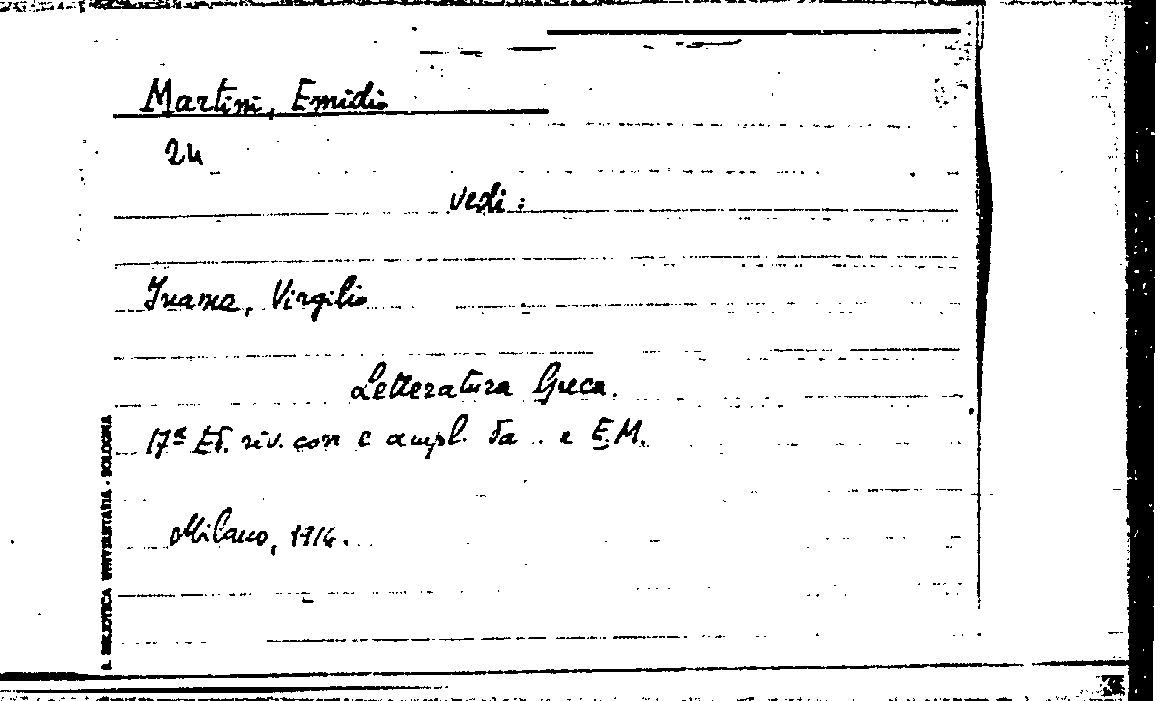 Martini, Emidio
24
vedi:
Inama, Virgilio
Letteratura Greca.
17ª Ed. riv. corr e ampl. da .. e E.M.
Milano, 1914.
R. BIBLIOTECA UNIVERSITARIA - BOLOGNA